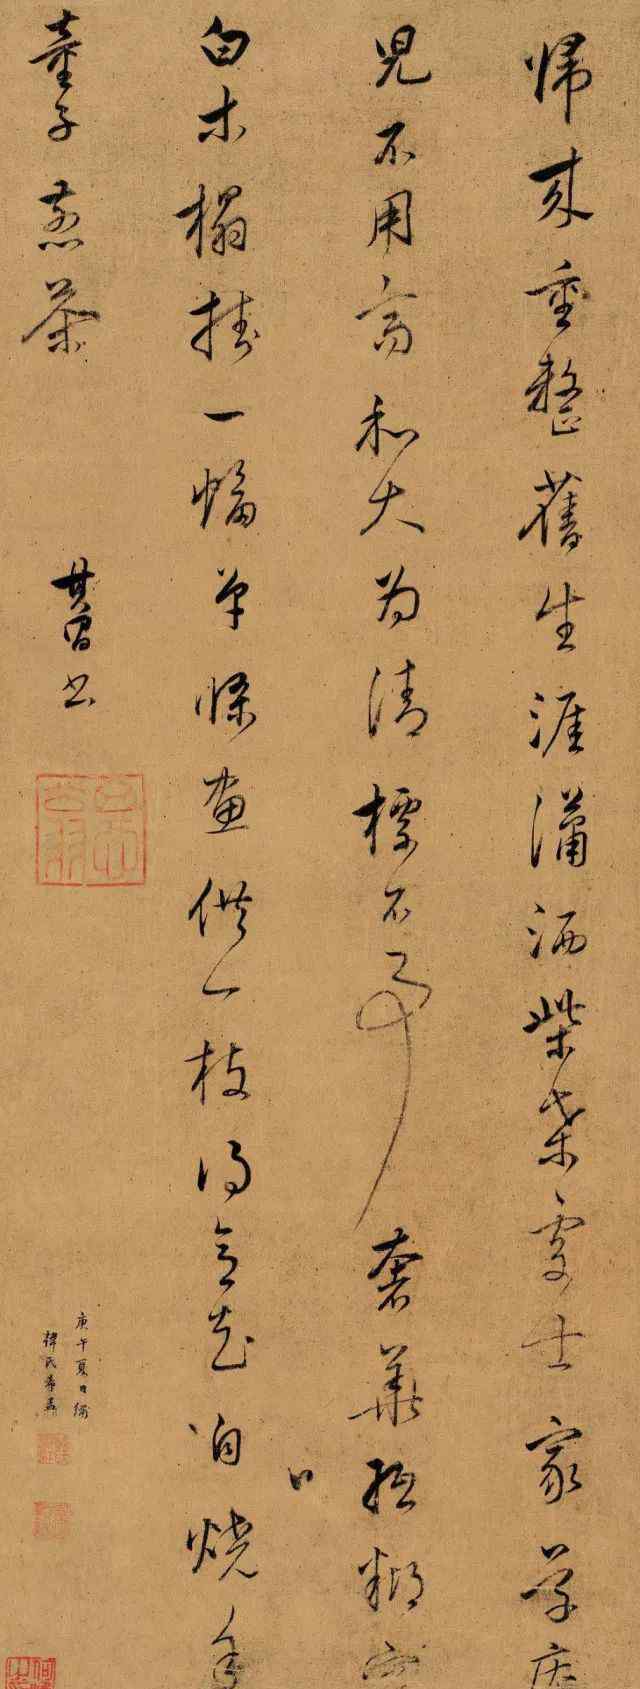 歸來重整舊生涯瀟洒柴桑處士家草庵
兒不用高和大為清標不事奢華紙糊窗
白木榻挂一幅單條畫供一枝得意花自燒香
童子烹茶
其昌書
庚午夏日繡
韓氏希孟